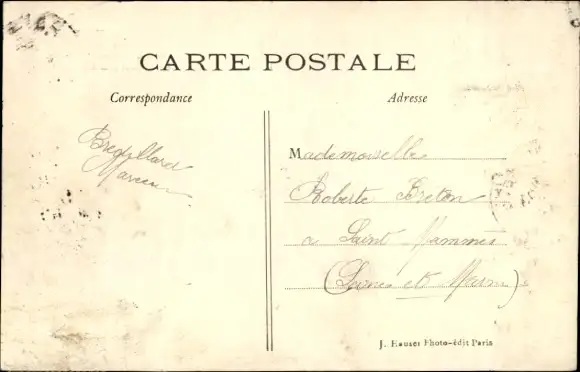 CARTE POSTALE
Correspondance
Adresse
Marceau
Mademoiselle
Roberte Breton
a Saint Mammès
(Seine et Marne)
J. Hauser Photo-édit Paris